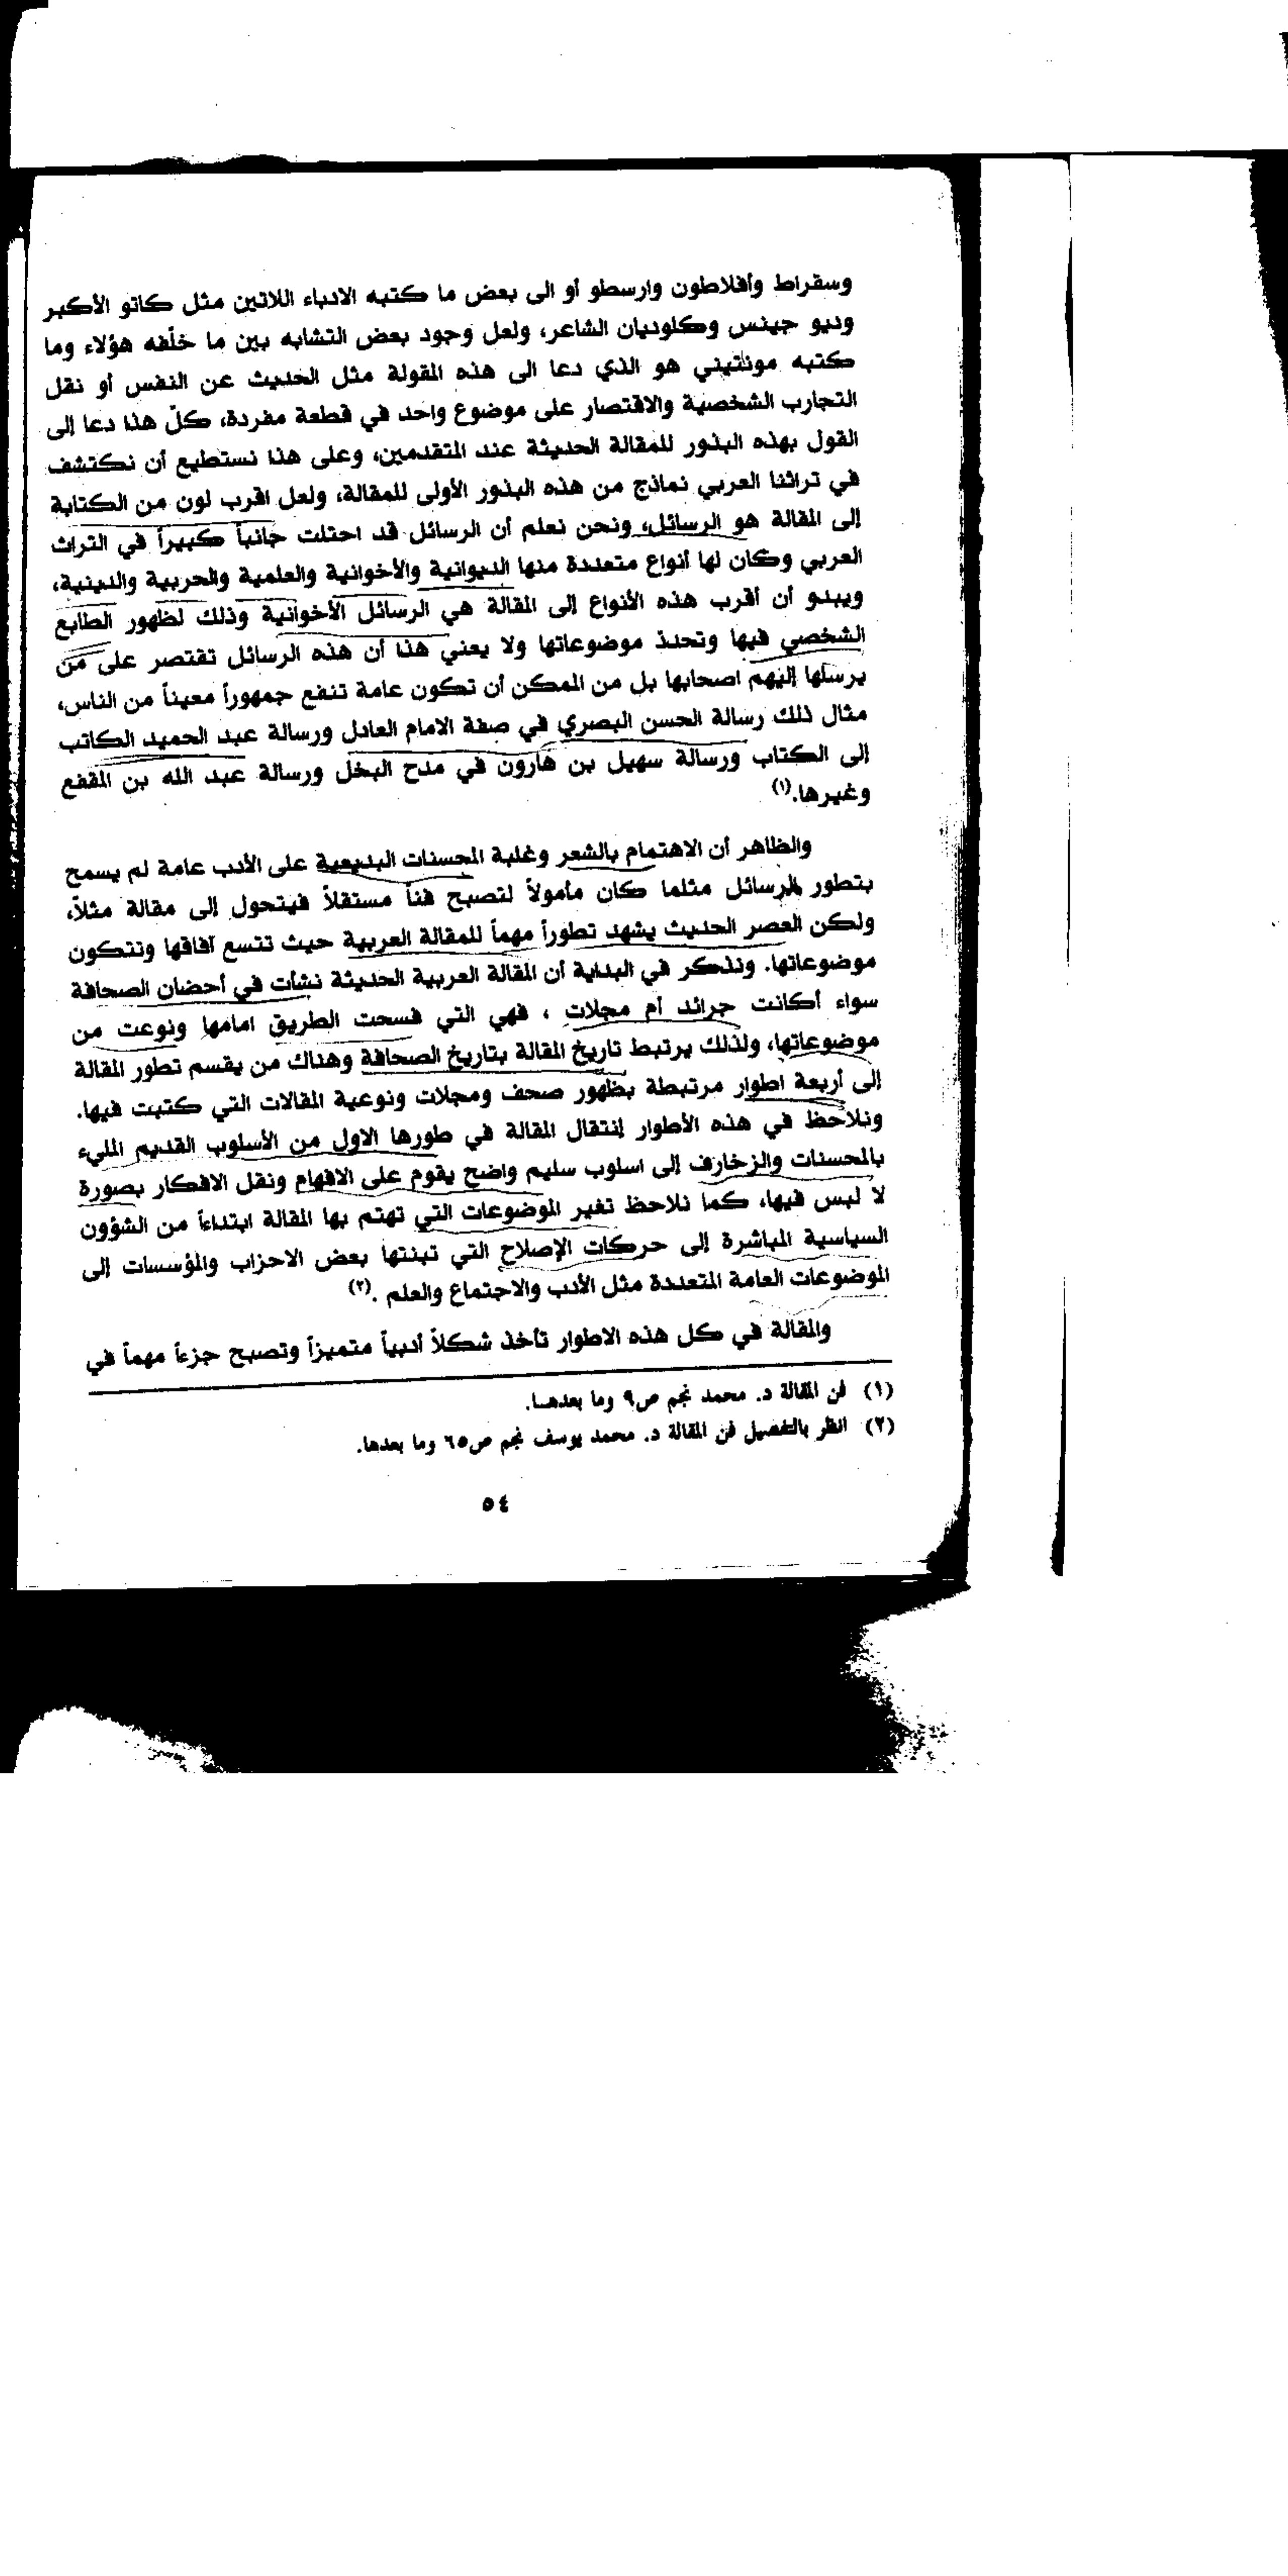 وسقراط وأفلاطون وارسطو أو الى بعض ما كتبه الادباء اللاتين مثل كاتو الأكبر
وديو جينس وكلوديان الشاعر، ولعل وجود بعض التشابه بين ما خلّفه هؤلاء وما
كتبه مونتيني هو الذي دعا الى هذه المقولة مثل الحديث عن النفس أو نقل
التجارب الشخصية والاقتصار على موضوع واحد في قطعة مفردة، كلّ هذا دعا إلى
القول بهذه البذور للمقالة الحديثة عند المتقدمين، وعلى هذا نستطيع أن نكتشف
في تراثنا العربي نماذج من هذه البذور الأولى للمقالة، ولعل اقرب لون من الكتابة
إلى المقالة هو الرسائل، ونحن نعلم أن الرسائل قد احتلت جانباً كبيراً في التراث
العربي وكان لها أنواع متعددة منها الديوانية والأخوانية والعلمية والحربية والدينية،
ويبدو أن أقرب هذه الأنواع إلى المقالة هي الرسائل الأخوانية وذلك لظهور الطابع
الشخصي فيها وتحدد موضوعاتها ولا يعني هذا أن هذه الرسائل تقتصر على من
يرسلها إليهم اصحابها بل من الممكن أن تكون عامة تنفع جمهوراً معيناً من الناس،
مثال ذلك رسالة الحسن البصري في صفة الامام العادل ورسالة عبد الحميد الكاتب
إلى الكتاب ورسالة سهيل بن هارون في مدح البخل ورسالة عبد الله بن المقفع
وغيرها.(١)
والظاهر أن الاهتمام بالشعر وغلبة المحسنات البديعية على الأدب عامة لم يسمح
بتطور الرسائل مثلما كان مأمولاً لتصبح فناً مستقلاً فيتحول إلى مقالة مثلاً،
ولكن العصر الحديث يشهد تطوراً مهماً للمقالة العربية حيث تتسع آفاقها وتتكون
موضوعاتها. ونذكر في البداية أن المقالة العربية الحديثة نشأت في أحضان الصحافة
سواء أكانت جرائد أم مجلات ، فهي التي فسحت الطريق امامها ونوعت من
موضوعاتها، ولذلك يرتبط تاريخ المقالة بتاريخ الصحافة وهناك من يقسم تطور المقالة
إلى أربعة اطوار مرتبطة بظهور صحف ومجلات ونوعية المقالات التي كتبت فيها.
ونلاحظ في هذه الأطوار إنتقال المقالة في طورها الاول من الأسلوب القديم المليء
بالمحسنات والزخارف إلى اسلوب سليم واضح يقوم على الافهام ونقل الافكار بصورة
لا لبس فيها، كما نلاحظ تغير الموضوعات التي تهتم بها المقالة ابتداءاً من الشؤون
السياسية المباشرة إلى حركات الإصلاح التي تبنتها بعض الاحزاب والمؤسسات إلى
الموضوعات العامة المتعددة مثل الأدب والاجتماع والعلم .(٢)
والمقالة في كل هذه الاطوار تأخذ شكلاً أدبياً متميزاً وتصبح جزءاً مهماً في
(١) فن المقالة د. محمد نجم ص٩ وما بعدهـا.
(٢) انظر بالتفصيل فن المقالة د. محمد يوسف نجم ص٦٥ وما بعدها.
٥٤